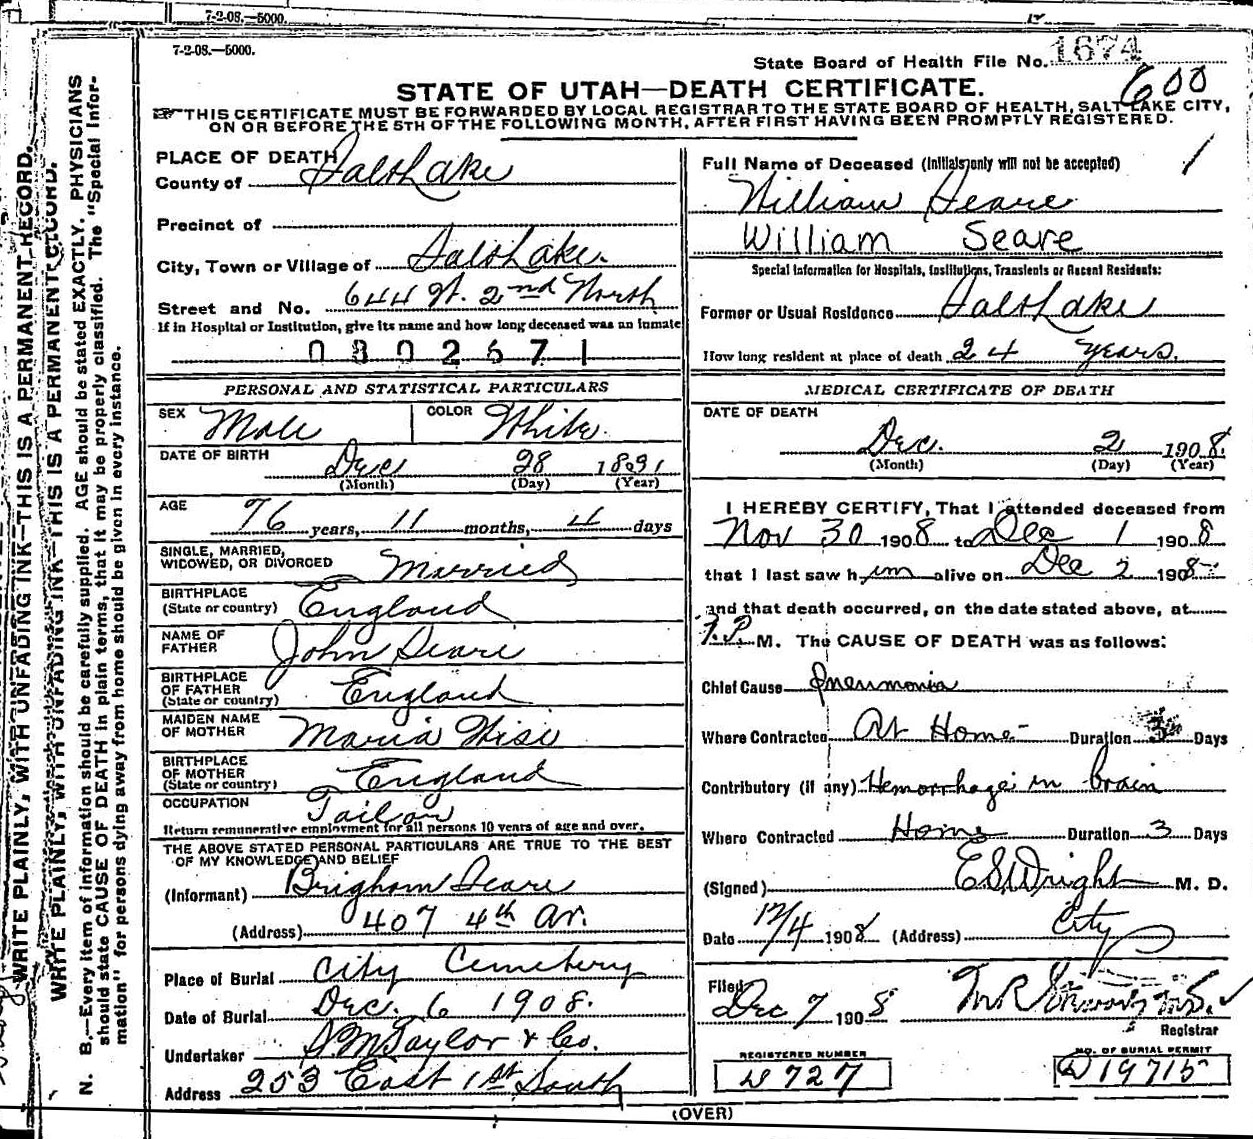 7-2-08.—5000.
7-2-08.—5000.
State Board of Health File No. 1674
600
STATE OF UTAH—DEATH CERTIFICATE.
THIS CERTIFICATE MUST BE FORWARDED BY LOCAL REGISTRAR TO THE STATE BOARD OF HEALTH, SALT LAKE CITY,
ON OR BEFORE THE 5TH OF THE FOLLOWING MONTH, AFTER FIRST HAVING BEEN PROMPTLY REGISTERED.
WRITE PLAINLY, WITH UNFADING INK—THIS IS A PERMANENT RECORD.
WRITE PLAINLY, WITH UNFADING INK—THIS IS A PERMANENT RECORD.
N. B.—Every item of information should be carefully supplied. AGE should be stated EXACTLY. PHYSICIANS
should state CAUSE OF DEATH in plain terms, that it may be properly classified. The "Special Infor-
mation" for persons dying away from home should be given in every instance.
PLACE OF DEATH
County of Salt Lake
Precinct of
City, Town or Village of Salt Lake
Street and No. 644 W. 2nd North
If in Hospital or Institution, give its name and how long deceased was an inmate
0802671
PERSONAL AND STATISTICAL PARTICULARS
SEX Male COLOR White
DATE OF BIRTH Dec 28 1831
(Month) (Day) (Year)
AGE 76 years, 11 months, 4 days
SINGLE, MARRIED,
WIDOWED, OR DIVORCED Married
BIRTHPLACE
(State or country) England
NAME OF
FATHER John Seare
BIRTHPLACE
OF FATHER
(State or country) England
MAIDEN NAME
OF MOTHER Maria Wise
BIRTHPLACE
OF MOTHER
(State or country) England
OCCUPATION Tailor
Return remunerative employment for all persons 10 years of age and over.
THE ABOVE STATED PERSONAL PARTICULARS ARE TRUE TO THE BEST
OF MY KNOWLEDGE AND BELIEF
(Informant) Brigham Seare
(Address) 407 4th Av.
Place of Burial City Cemetery
Date of Burial Dec. 6 1908.
Undertaker S. M. Taylor & Co.
Address 253 East 1st South
Full Name of Deceased (Initials only will not be accepted)
William Seare
William Seare
Special Information for Hospitals, Institutions, Transients or Recent Residents:
Former or Usual Residence Salt Lake
How long resident at place of death 24 years.
MEDICAL CERTIFICATE OF DEATH
DATE OF DEATH
Dec. 2 1908.
(Month) (Day) (Year)
I HEREBY CERTIFY, That I attended deceased from
Nov 30 1908 to Dec 1 1908
that I last saw him alive on Dec 2 1908
and that death occurred, on the date stated above, at
P. M. The CAUSE OF DEATH was as follows:
Chief Cause Pneumonia
Where Contracted At Home Duration 3 Days
Contributory (if any) Hemorrhage in brain
Where Contracted Home Duration 3 Days
(Signed) E S Wright M. D.
Date 12/4 1908 (Address) City
Filed
Dec 7 1908
Registrar
REGISTERED NUMBER
D 727
NO. OF BURIAL PERMIT
D 19715
(OVER)